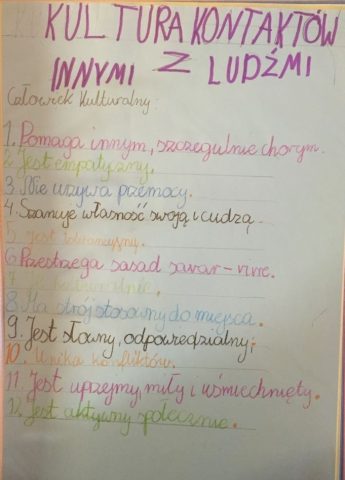 KULTURA KONTAKTÓW
INNYMI Z LUDŹMI
Człowiek kulturalny:
1. Pomaga innym, szczegulnie chorym.
2. Jest empatyczny.
3. Nie używa przemocy.
4. Szanuje własność swoją i cudzą.
5. Jest tolerancyjny.
6. Przestrzega zasad savar-vivre.
7.
8. Ma strój stosowny do miejsca.
9. Jest słowny, odpowiedzialny,
10. Unika konfliktów.
11. Jest uprzejmy, miły i uśmiechnięty.
12. Jest aktywny społecznie.